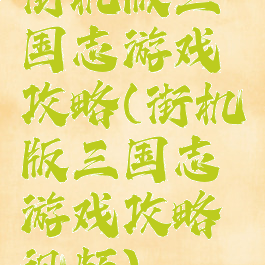 街机版三
国志游戏
攻略(街机
版三国志
游戏攻略
视频)